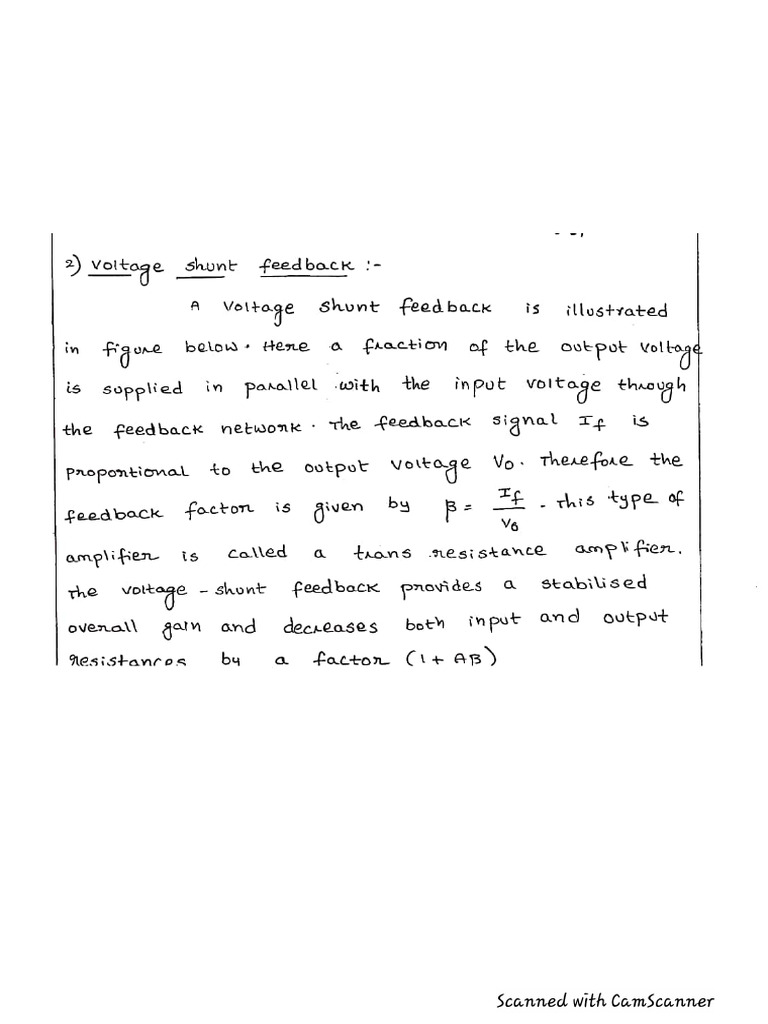 2) Voltage shunt feedback :-
A Voltage shunt feedback is illustrated
in figure below. Here a fraction of the output voltage
is supplied in parallel with the input voltage through
the feedback network. The feedback signal If is
proportional to the output voltage Vo. Therefore the
feedback factor is given by β = If/Vo. This type of
amplifier is called a trans resistance amplifier.
The voltage-shunt feedback provides a stabilised
overall gain and decreases both input and output
resistances by a factor (1+ Aβ)
Scanned with CamScanner